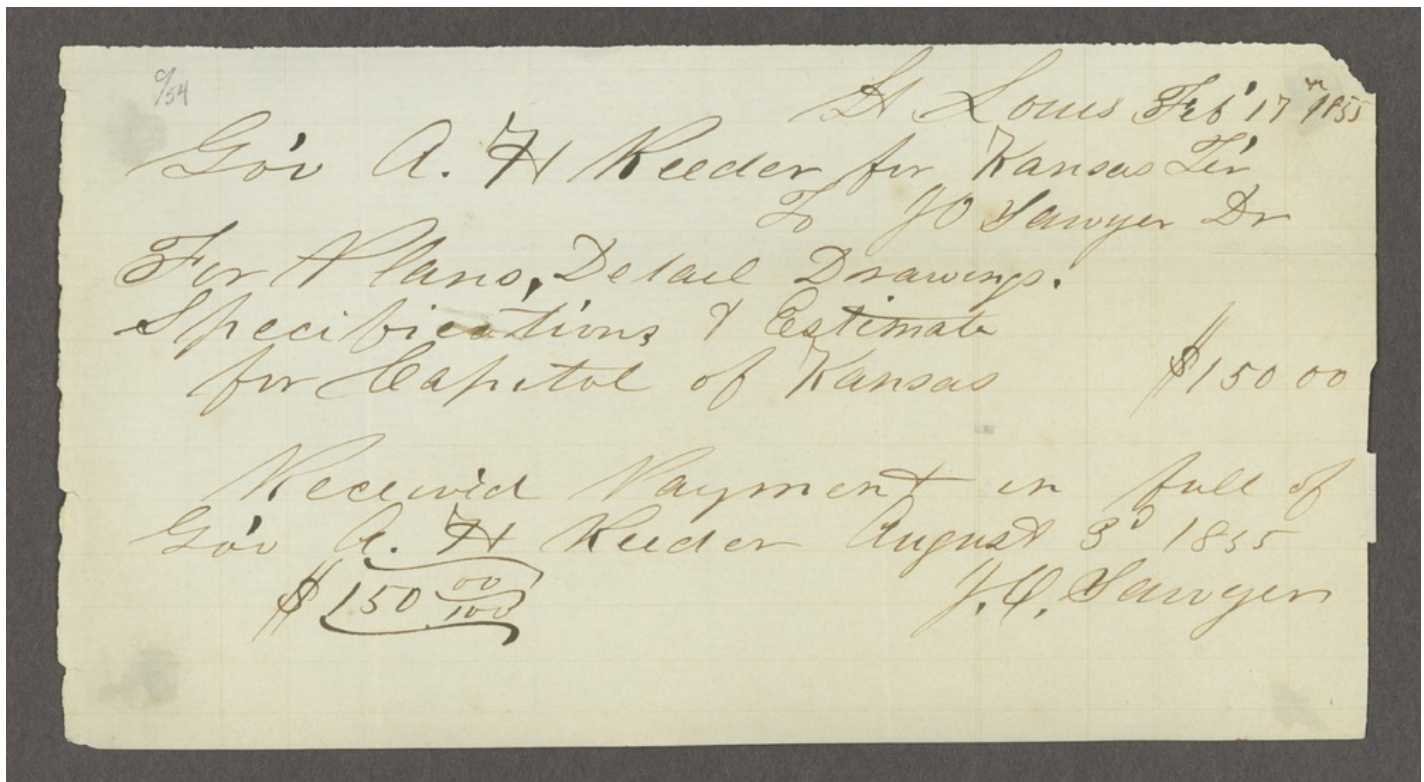 c/54
St Louis Feb' 17th 1855
Go'v A. H Reeder for Kansas Te'r
To J O Sawyer Dr
For Plans, Detail Drawings.
Specifications & Estimate
for Capitol of Kansas $150 00
Receiv'd Payment in full of
Go'v A. H Reeder August 3d 1855
$150 00/100 J. O. Sawyer